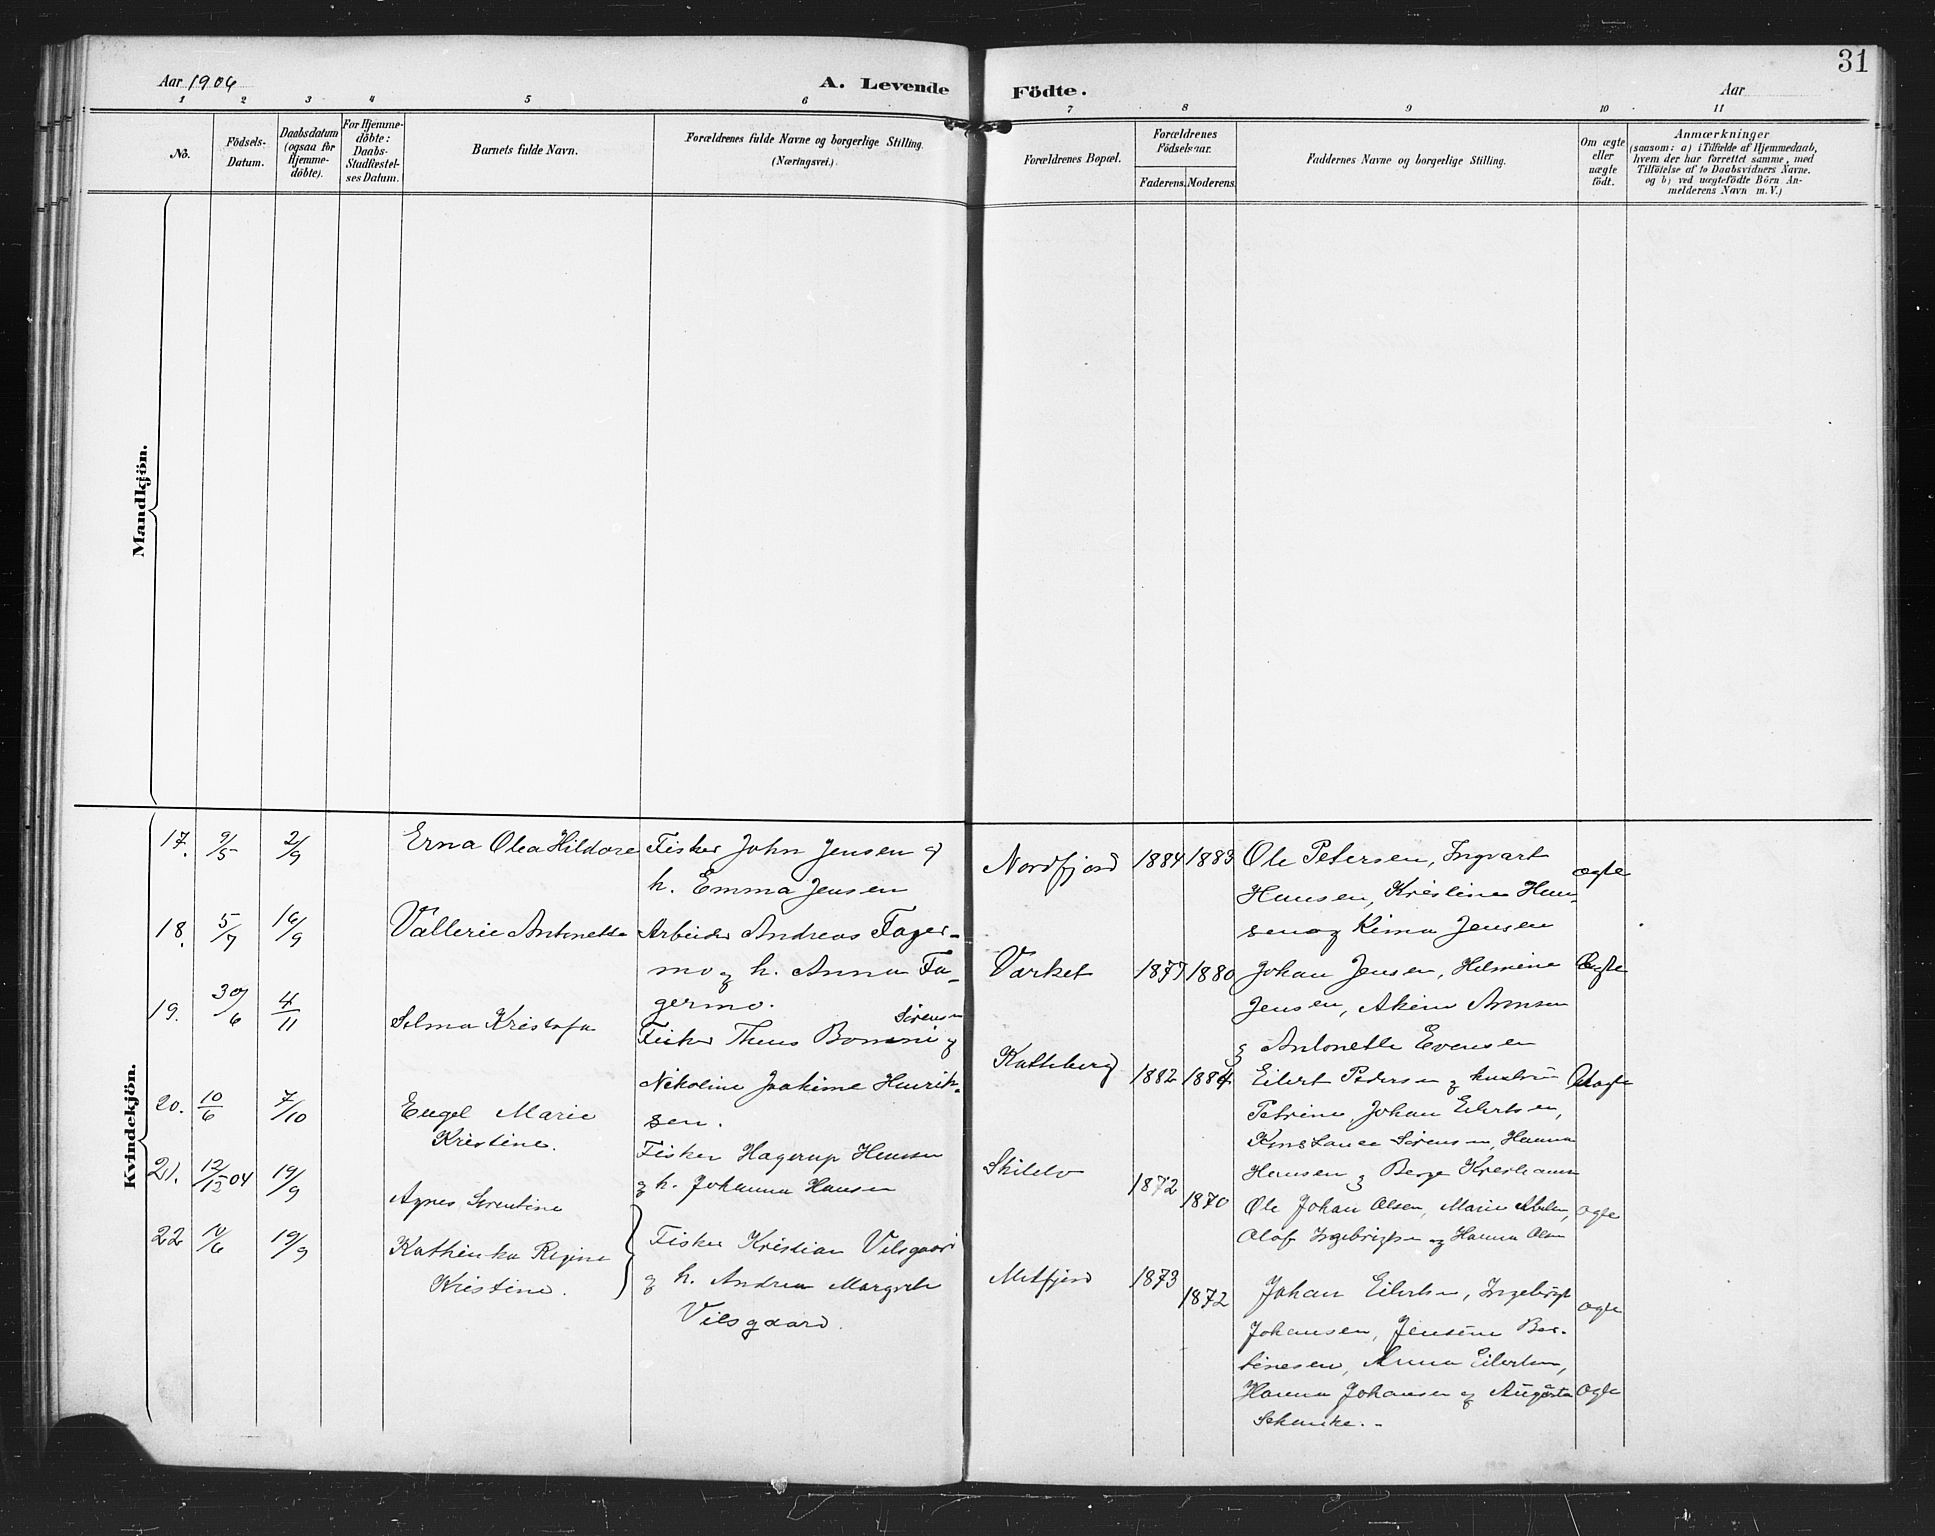 31
Aar 1906
A. Levende Födte.
Aar
1 2 3 4 5 6 7 8 9 10 11
No.
Födsels-Datum.
Daabsdatum (ogsaa for Hjemme-döbte).
For Hjemme-döbte: Daabs-Stadfestel-ses Datum.
Barnets fulde Navn.
Forældrenes fulde Navne og borgerlige Stilling. (Næringsvei.)
Forældrenes Bopæl.
Forældrenes Födselsaar.
Faderens. Moderens.
Faddernes Navne og borgerlige Stilling.
Om ægte eller uægte födt.
Anmærkninger
(saasom: a) i Tilfælde af Hjemmedaab,
hvem der har forrettet samme, med
Tilföielse af to Daabsvidners Navne.
og b) ved uægtefödte Börn An-
melderens Navn m. V.)
Mandkjön.
Kvindekjön.
17. 9/5 2/9 Erna Olea Hildore Fisker John Jensen og
h. Emma Jensen
Nordfjord 1884 1883 Ole Petersen, Ingvart
Hansen, Kristine Han-
sen og Kima Jensen
ægte
18. 5/7 16/9 Vallerie Antonette Arbeider Andreas Fager-
mo og h. Anna Fa-
germo.
Varket 1877 1880 Johan Jensen, Helmine
Jensen, Akim Arnsen
og Antonette Evensen
Ægte
19. 30/6 4/11 Selma Kristofa
Sörensen
Fisker Theus Bommi og
Nikoline Joakime Henrik-
sen.
Katteberg 1882 1884 Eilert Pedersen og hustru
Petrine, Johan Eilertsen,
Konstance Sörensen, Hanna
Hansen og Berge Kristiansen
Uægte
20. 10/6 7/10 Engel Marie
Kristine.
Fisker Hagerup Hansen
og h. Johanna Hansen
Skilelv 1872 1870 Ole Johan Olsen, Marie Abelsen,
Olaf Ingebrigtsen og Hanna Olsen
ægte
21. 12/12 04 19/9 Agnes Sorentine
22 10/6 19/9 Kathinka Regine
Kristine.
Fisker Kristian Vilsgaard
og h. Andrea Margrete
Vilsgaard.
Metfjord 1873 1872 Johan Eilertsen, Ingebrigt
Johansen, Jensine Ber-
tinesen, Anna Eilertsen,
Hanna Johansen og Augusta
Schanke.
ægte
ægte